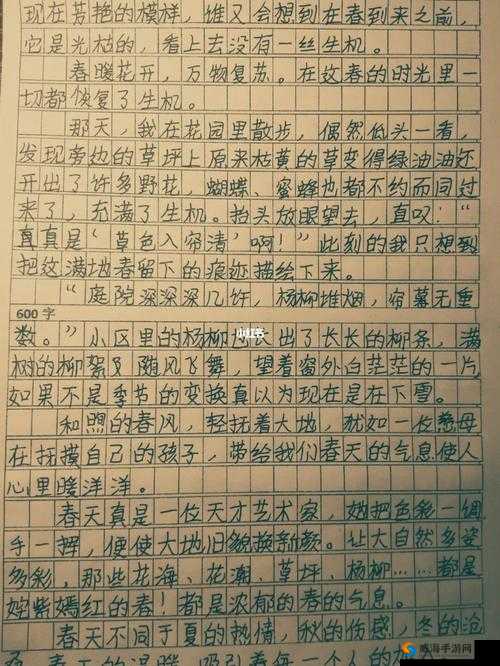 现在芳艳的模样，谁又会想到在春到来之前，
它是光枯的，看上去没有一丝生机。
春暖花开，万物复苏。在这春的时光里一
切都恢复了生机。
那天，我在花园里散步，偶然低头一看，
发现旁边的草坪上原来枯黄的草变得绿油油还
开出了许多野花，蝴蝶、蜜蜂也都不约而同过
来了，充满了生机。抬头放眼望去，直叹：“
真真是‘草色入帘清’啊！”此刻的我只想到
把这满地春留下的痕迹描绘下来。
“庭院深深深几许，杨柳堆烟，帘幕无重
600字
数。”小区里的杨柳长出了长长的柳条，满
小红书
树的柳絮又随风飞舞，望着窗外白茫茫的一片，
如果不是季节的变换真以为现在是在下雪。
和照的春风，轻抚着大地，犹如一位慈母
在抚摸自己的孩子，带给我们春天的气息使人
心里暖洋洋。
春天真是一位天才艺术家，她把色彩一绸
手一挥，便使大地旧貌换新颜。让大自然多姿
多彩，那些花海、花潮、草坪、杨柳……都是
姹紫嫣红的春！都是浓郁的春的气息。
春天不同于夏的热情，秋的伤感，冬的沧
春天的温暖，吸引着每一个人的
威海手游网